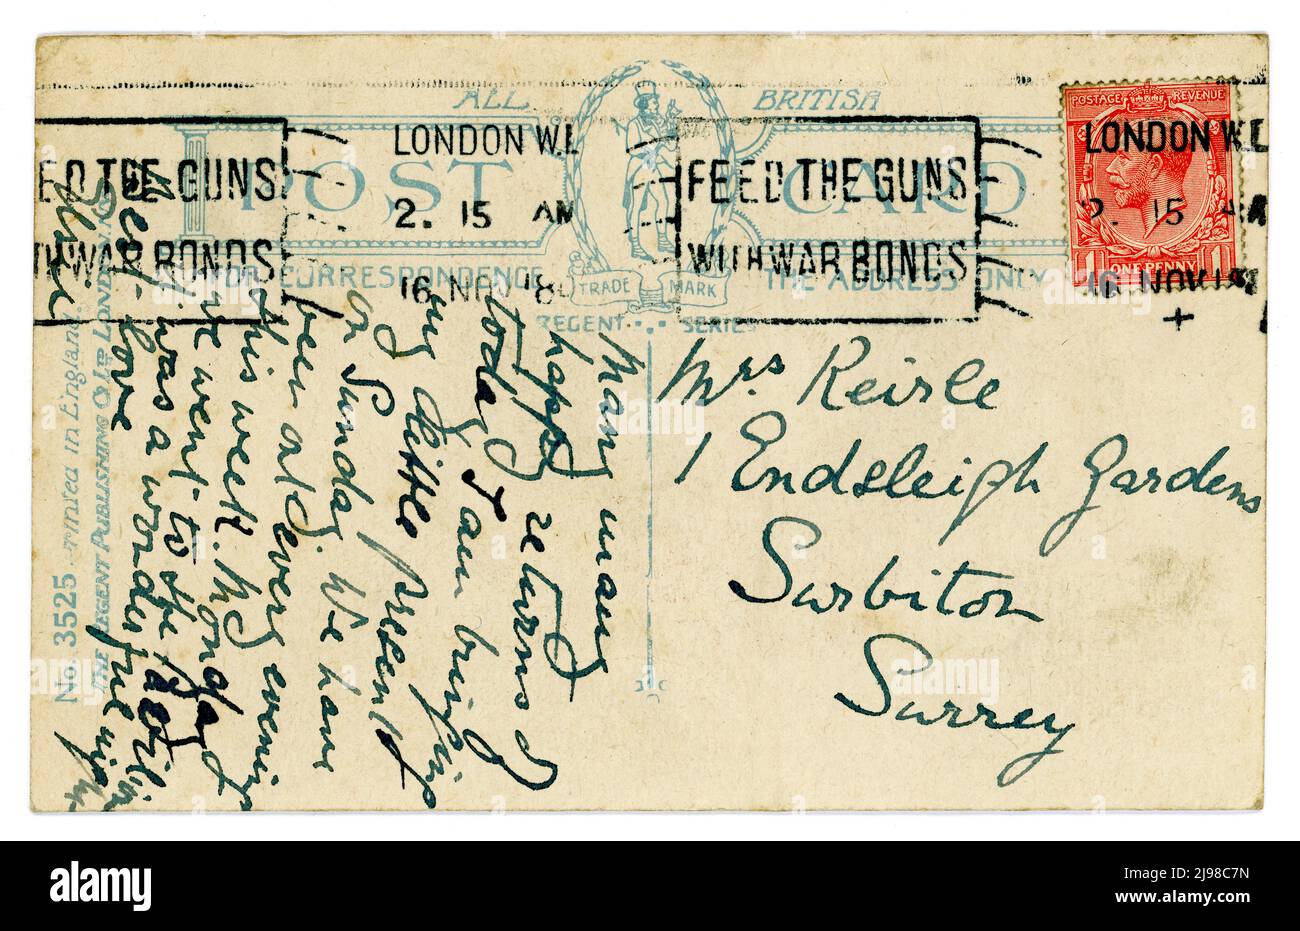 ALL BRITISH
POST CARD
FOR CORRESPONDENCE
THE ADDRESS ONLY
TRADE MARK
REGENT SERIES
LONDON W.1.
2. 15 AM
16 NOV 18
FEED THE GUNS
WITH WAR BONDS
ED THE GUNS
TH WAR BONDS
POSTAGE REVENUE
1 ONE PENNY 1
LONDON W.1.
2. 15 AM
16 NOV 18
+
Mrs Keirle
1 Endsleigh Gardens
Surbiton
Surrey
Many many
happy returns of
today I am bringing
my little present
on Sunday. We have
been at every evening
this week. Monday
we went to the Pavilion
it was a wonderful night
love
Elsie
No. 3525 Printed in England.
THE REGENT PUBLISHING Co LTD LONDON
alamy
Image ID: 2J98C7N
www.alamy.com